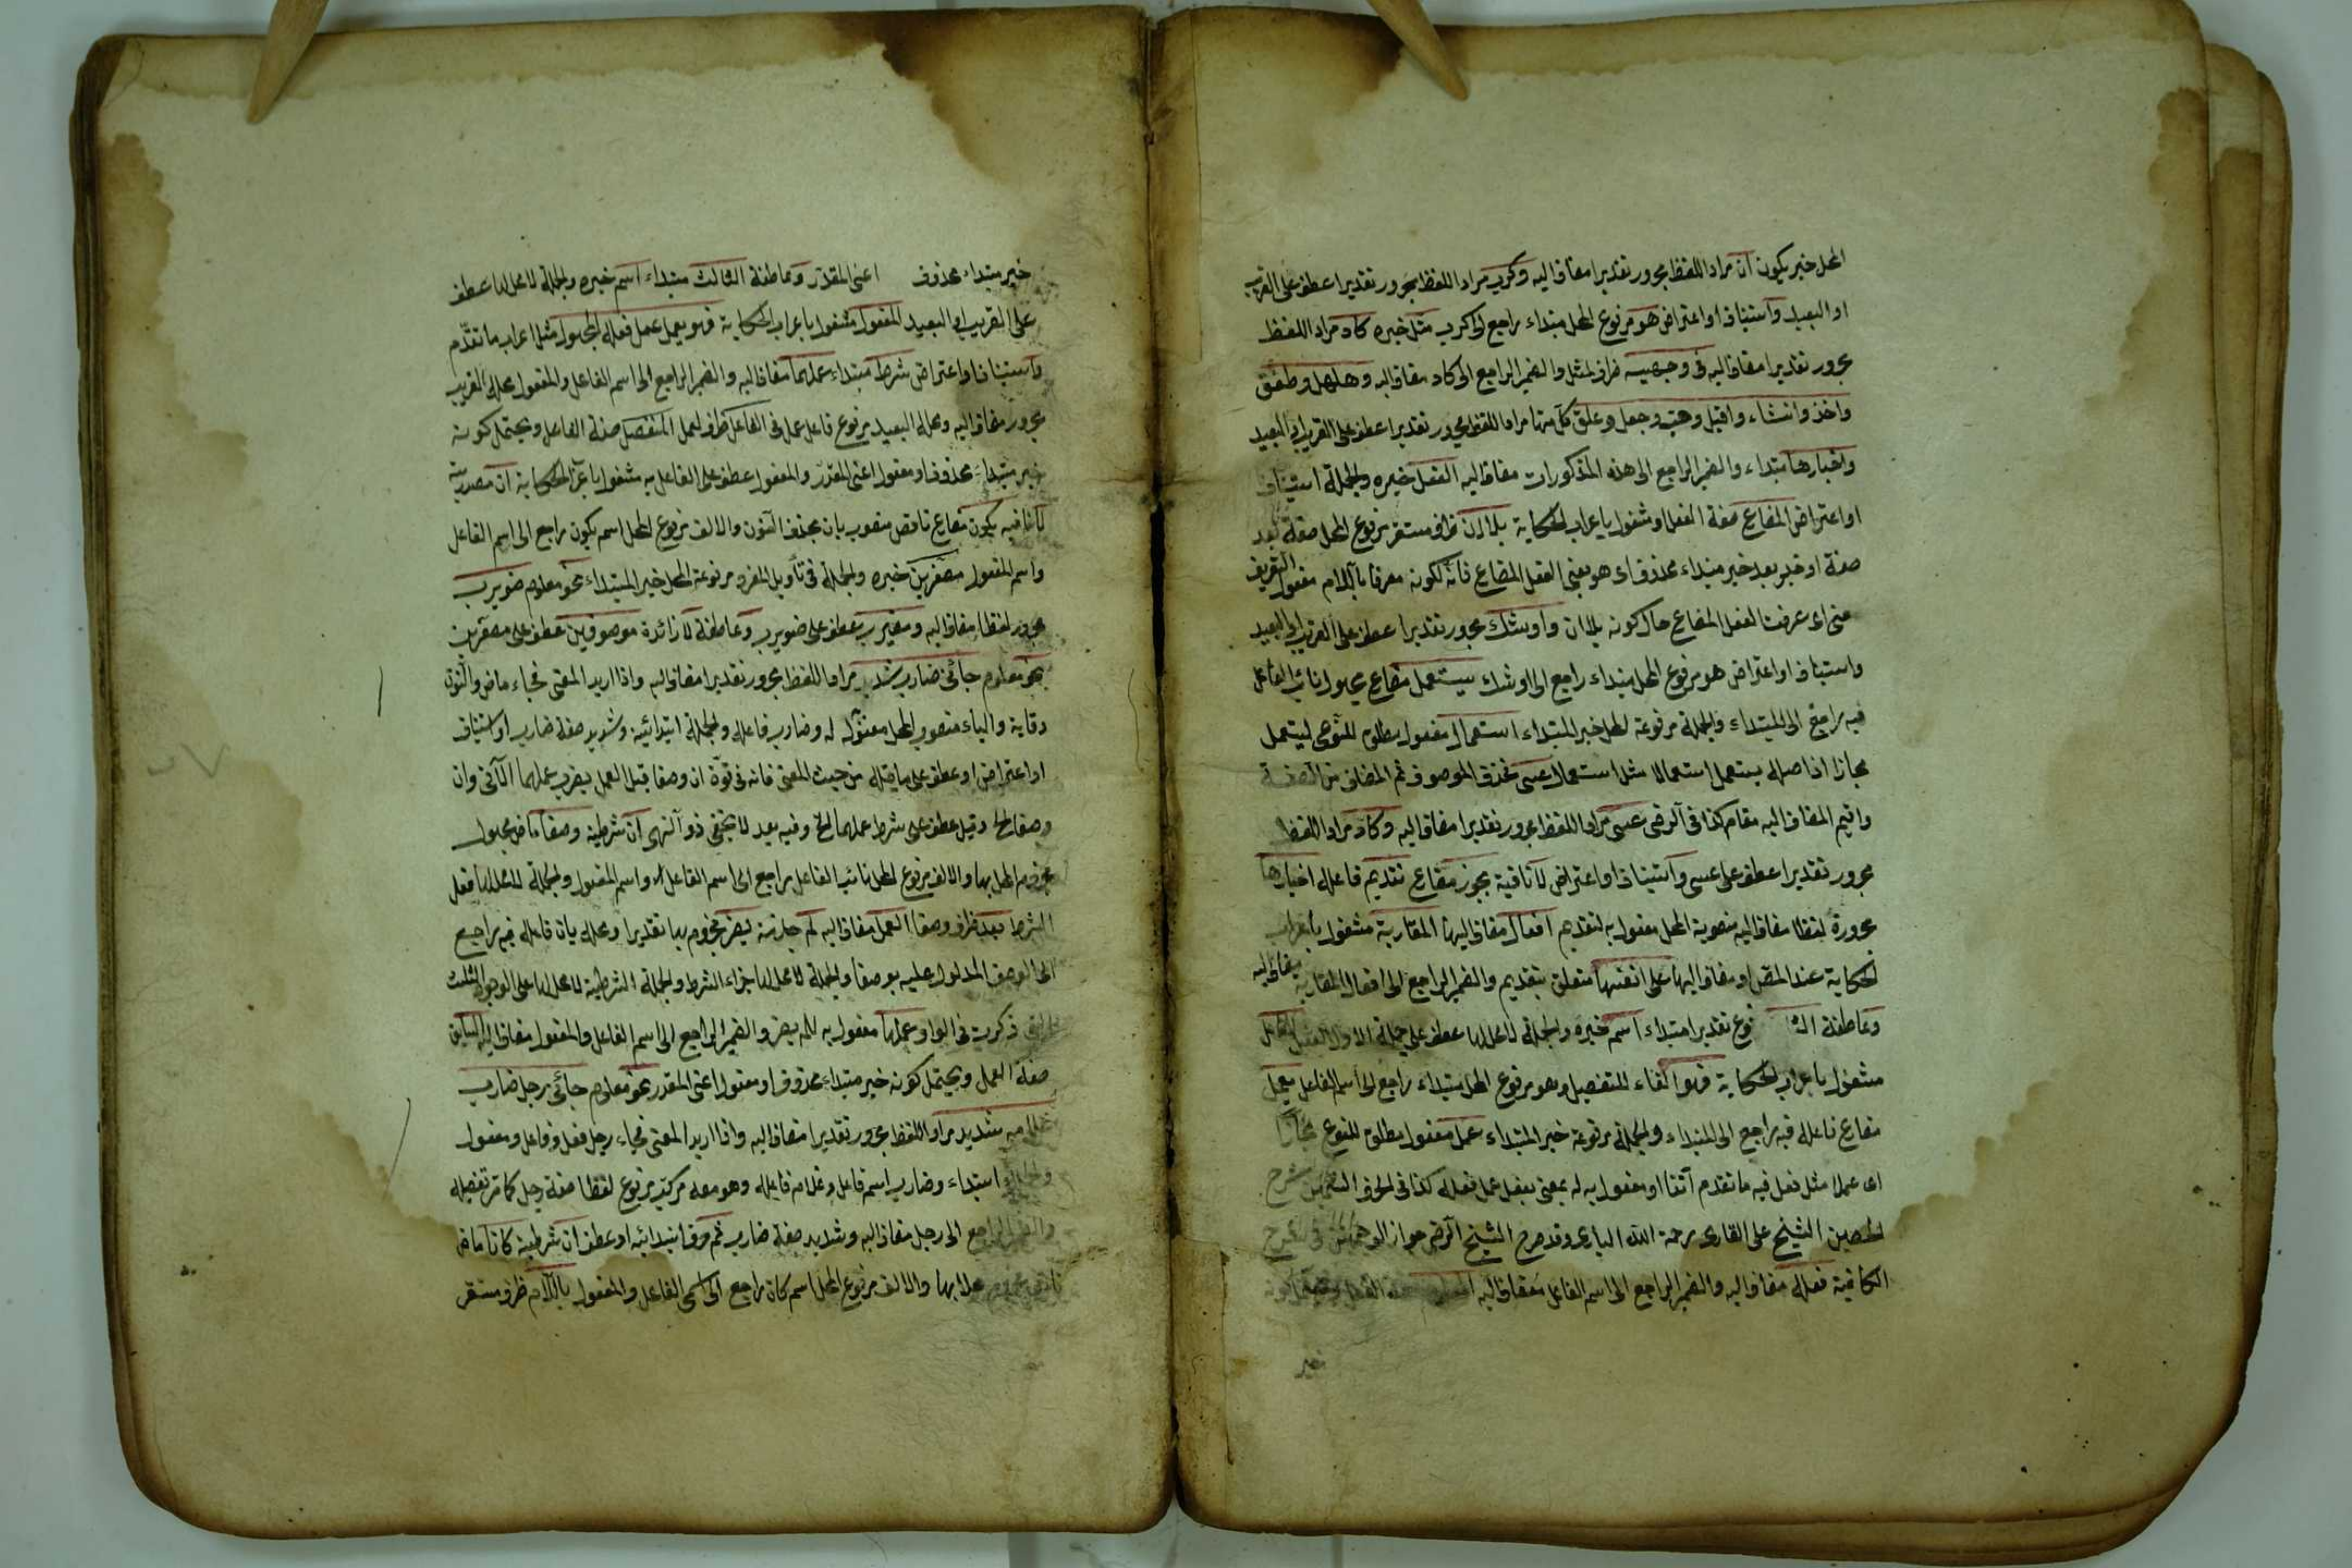 المحل خبر يكون ان مراد اللفظ مجرور تقديرا مضاف اليه وكرب مراد اللفظ مجرور تقديرا عطف على القريب
او البعيد واستيناف او اعتراض هو مرفوع المحل مبتداء راجع الى كرب مثل خبره كاد مراد اللفظ
مجرور تقديرا مضاف اليه في وجهيه ظرف لمثل والضمير الراجع الى كاد مضاف اليه وهلهل وطفق
واخذ وانشاء واقبل وهب وجعل وعلق كل منها مراد اللفظ مجرور تقديرا عطف على القريب او البعيد
واخبارها مبتداء والضمير الراجع الى هذه المذكورات مضاف اليه الفعل خبره والجملة استيناف
او اعتراض المضارع صفة الفعل او مشغول باعراب الحكاية بلا ان ظرف مستقر مرفوع المحل صفة بعد
صفة او خبر بعد خبر مبتداء محذوف اى هو يعنى الفعل المضارع فانه لكونه معرفا باللام مفعول التعريف
معنى اى عرفت الفعل المضارع حال كونه بلا ان واوشك مجرور تقديرا عطف على القريب او البعيد
واستيناف او اعتراض هو مرفوع المحل مبتداء راجع الى اوشك يستعمل مضارع مجهول نائب الفاعل
فيه راجع الى المبتداء والجملة مرفوعة المحل خبر المبتداء استعمال مفعول مطلق للنوعى ليستعمل
مجازا اذ اصله يستعمل استعمالا مثل استعمال عسى فحذف الموصوف ثم المضاف من الصفة
واقيم المضاف اليه مقام كذا في الرضى عسى مراد اللفظ مجرور تقديرا مضاف اليه وكاد مراد اللفظ
مجرور تقديرا عطف على عسى واستيناف او اعتراض لا نافية يجوز مضارع تقديم فاعله اخبارها
مجرورة لفظا مضاف اليه منصوبة المحل مفعول به لتقديم افعال مضاف اليها المقاربة مشغول باعراب
الحكاية عند المصل او مضاف اليها على انفسها متعلق بتقديم والضمير الراجع الى افعال المقاربة مضاف اليه
وعاطفة مرفوع تقديرا مبتداء اسم خبره والجملة لا محل لها عطف على جملة الاول الفاعل
مشغول باعراب الحكاية فهو الفاء للتفصيل وهو مرفوع المحل مبتداء راجع الى اسم الفاعل يعمل
مضارع فاعله فيه راجع الى المبتداء والجملة مرفوعة خبر المبتداء عمل مفعول مطلق للنوع مجازا
اى عملا مثل فعل فيه ما تقدم آنفا او مفعول به له بمعنى يفعل عمل فعله كذا في الحرز الثمين شرح
الحصين الشيخ على القارى رحمة الله البارى وقد صرح الشيخ الرضى جواز الوجهين في شرح
الكافية فعله مضاف اليه والضمير الراجع الى اسم الفاعل مضاف اليه
خبر
خبر مبتداء محذوف اعنى المقدر وعاطفة الثالث مبتداء اسم خبره والجملة لا محل لها عطف
على القريب او البعيد المفعول مشغول باعراب الحكاية فهو يعمل عمل فعله المجهول مثل اعراب ما تقدم
واستيناف او اعتراض شرط مبتداء عملهما مضاف اليه والضمير الراجع الى اسم الفاعل والمفعول محله القريب
مجرور مضاف اليه ومحله البعيد مرفوع فاعل عمل في الفاعل ظرف لعمل المنفصل صفة الفاعل ويحتمل كونه
خبر مبتداء محذوف او مفعول اعنى المقدر والمفعول عطف على الفاعل به مشغول باعراب الحكاية ان مصدرية
لا نافية يكون مضارع ناقص منصوب بان بحذف النون والالف مرفوع المحل اسم يكون راجع الى اسم الفاعل
واسم المفعول مصغرين خبره والجملة في تأويل المفرد مرفوعة المحل خبر المبتداء نحو معلوم ضويرب
مجرور لفظا مضاف اليه ومضيرب عطف على ضويرب وعاطفة لا زائدة موصوفين عطف على مصغرين
نحو معلوم جائنى ضارب شديد مراد اللفظ مجرور تقديرا مضاف اليه واذا اريد المعنى فجاء ماض والنون
وقاية والياء منصوب المحل مفعول له وضارب فاعله والجملة ابتدائية وشديد صفة ضارب او استيناف
او اعتراض او عطف على ما قبله من حيث المعنى فانه في قوة ان وصفا قبل العمل يضر عملهما الآتى وان
وصفا الخ وقيل عطف على شرط عملهما الخ وفيه بعد لا يخفى ذو النهى ان شرطية وصفا ماض مجهول
مجزوم المحل بها والالف مرفوع المحل نائب الفاعل راجع الى اسم الفاعل واسم المفعول والجملة لا محل لها فعل
الشرط بعد ظرف وصفا العمل مضاف اليه لم جازمة يضر مجزوم بها تقديرا ومحله بان فاعله فيه راجع
الى الوصف المدلول عليه بوصفا والجملة لا محل لها جزاء الشرط والجملة الشرطية لا محل لها على الوجوه الثلث
التى ذكرت في الواو عملهما مفعول به للم يضر والضمير الراجع الى اسم الفاعل والمفعول مضاف اليه السابق
صفة العمل ويحتمل كونه خبر مبتداء محذوف او مفعول اعنى المقدر نحو معلوم جائنى رجل ضارب
غلامه شديد مراد اللفظ مجرور تقديرا مضاف اليه واذا اريد المعنى فجاء رجل فعل وفاعل ومفعول
والجملة ابتداء وضارب اسم فاعل وغلام فاعله وهو معه مركب مرفوع لفظا صفة رجل كما مر تفصيله
والضمير الراجع الى رجل مضاف اليه وشديد صفة ضارب ثم حرف ابتدائية او عطف ان شرطية كانا ماض
ناقص مجزوم محلا بها والالف مرفوع المحل اسم كان راجع الى اسمى الفاعل والمفعول باللام ظرف مستقر